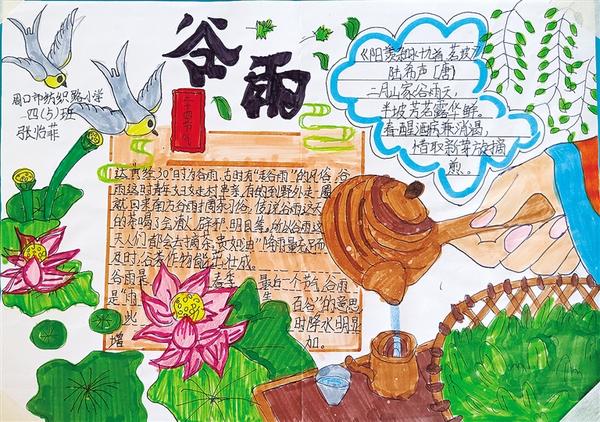 谷雨
二十四节气
周口市纺织路小学
四(5)班
张怡菲
《阳羡杂咏十九首 茗坡》
陆希声[唐]
二月山家谷雨天,
半坡芳茗露华鲜。
春醒酒病兼消渴,
惜取新芽旋摘
煎。
达黄经30°时为谷雨,古时有"走谷雨"的风俗,谷
雨这时青年妇女走村串亲,有的到野外走一圈
就回来南方谷雨摘茶习俗,传说谷雨这天
的茶喝了会清火,辟邪,明目等,所以谷雨这
天人们都会去摘茶,"降雨量充足而
及时,谷类作物能茁壮成。
谷雨是 春季 最后一个节气,谷雨
是"雨 生 百谷"的意思
此 时降水明显
增 加。